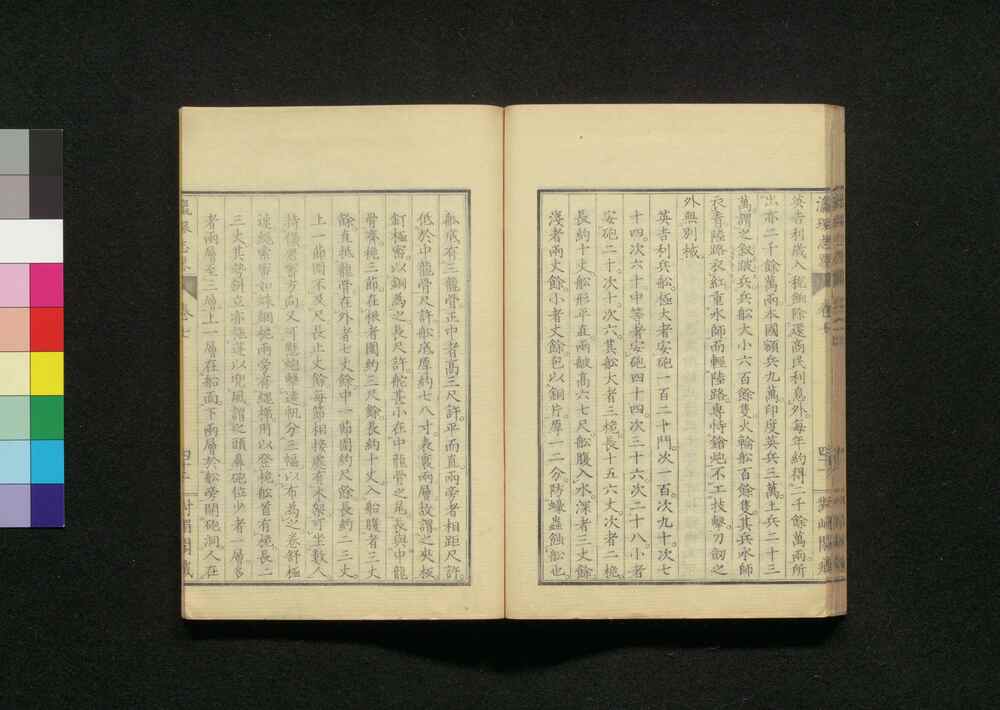 英吉利歲入稅餉除還商民利息外每年約得二千餘萬兩所
出亦二千餘萬兩本國額兵九萬印度英兵三萬土兵二十三
萬謂之敘跛兵兵船大小六百餘隻火輪船百餘隻其兵水師
衣青陸路衣紅重水師而輕陸路專恃鎗炮不工技擊刀劒之
外無別械
英吉利兵船極大者安砲一百二十門次一百次九十次七
十四次六十中等者安砲四十四次三十六次二十八小者
安砲二十次十次六其船大者三桅長十五六丈次者二桅
長約十丈船形平直兩皷高六七尺船腹入水深者三丈餘
淺者兩丈餘小者丈餘包以銅片厚一二分防蠔蟲蝕船也
船底有三龍骨正中者高三尺許平而直兩旁者相距尺許
低於中龍骨尺許船底厚約七八寸表裏兩層故謂之夾板
釘極密以銅為之長尺許舵甚小在中龍骨之尾長與中龍
骨齊桅三節在根者圍約三尺餘長約十丈入船腹者三丈
餘直抵龍骨在外者七丈餘中一節圍約尺餘長約二三丈
上一節圍不及尺長止丈餘每節相接處有木架可坐數人
持儀器審方向又可駛砲擊遠帆分三幅以布為之卷舒極
速繩索密如蛛網桅兩旁有繩梯用以登桅船首有桅長二
三丈其勢斜立亦張蓬以兜風謂之頭鼻砲位少者一層多
者兩層至三層上一層在船面下兩層於船旁開砲洞人在
瀛環志畧 卷七